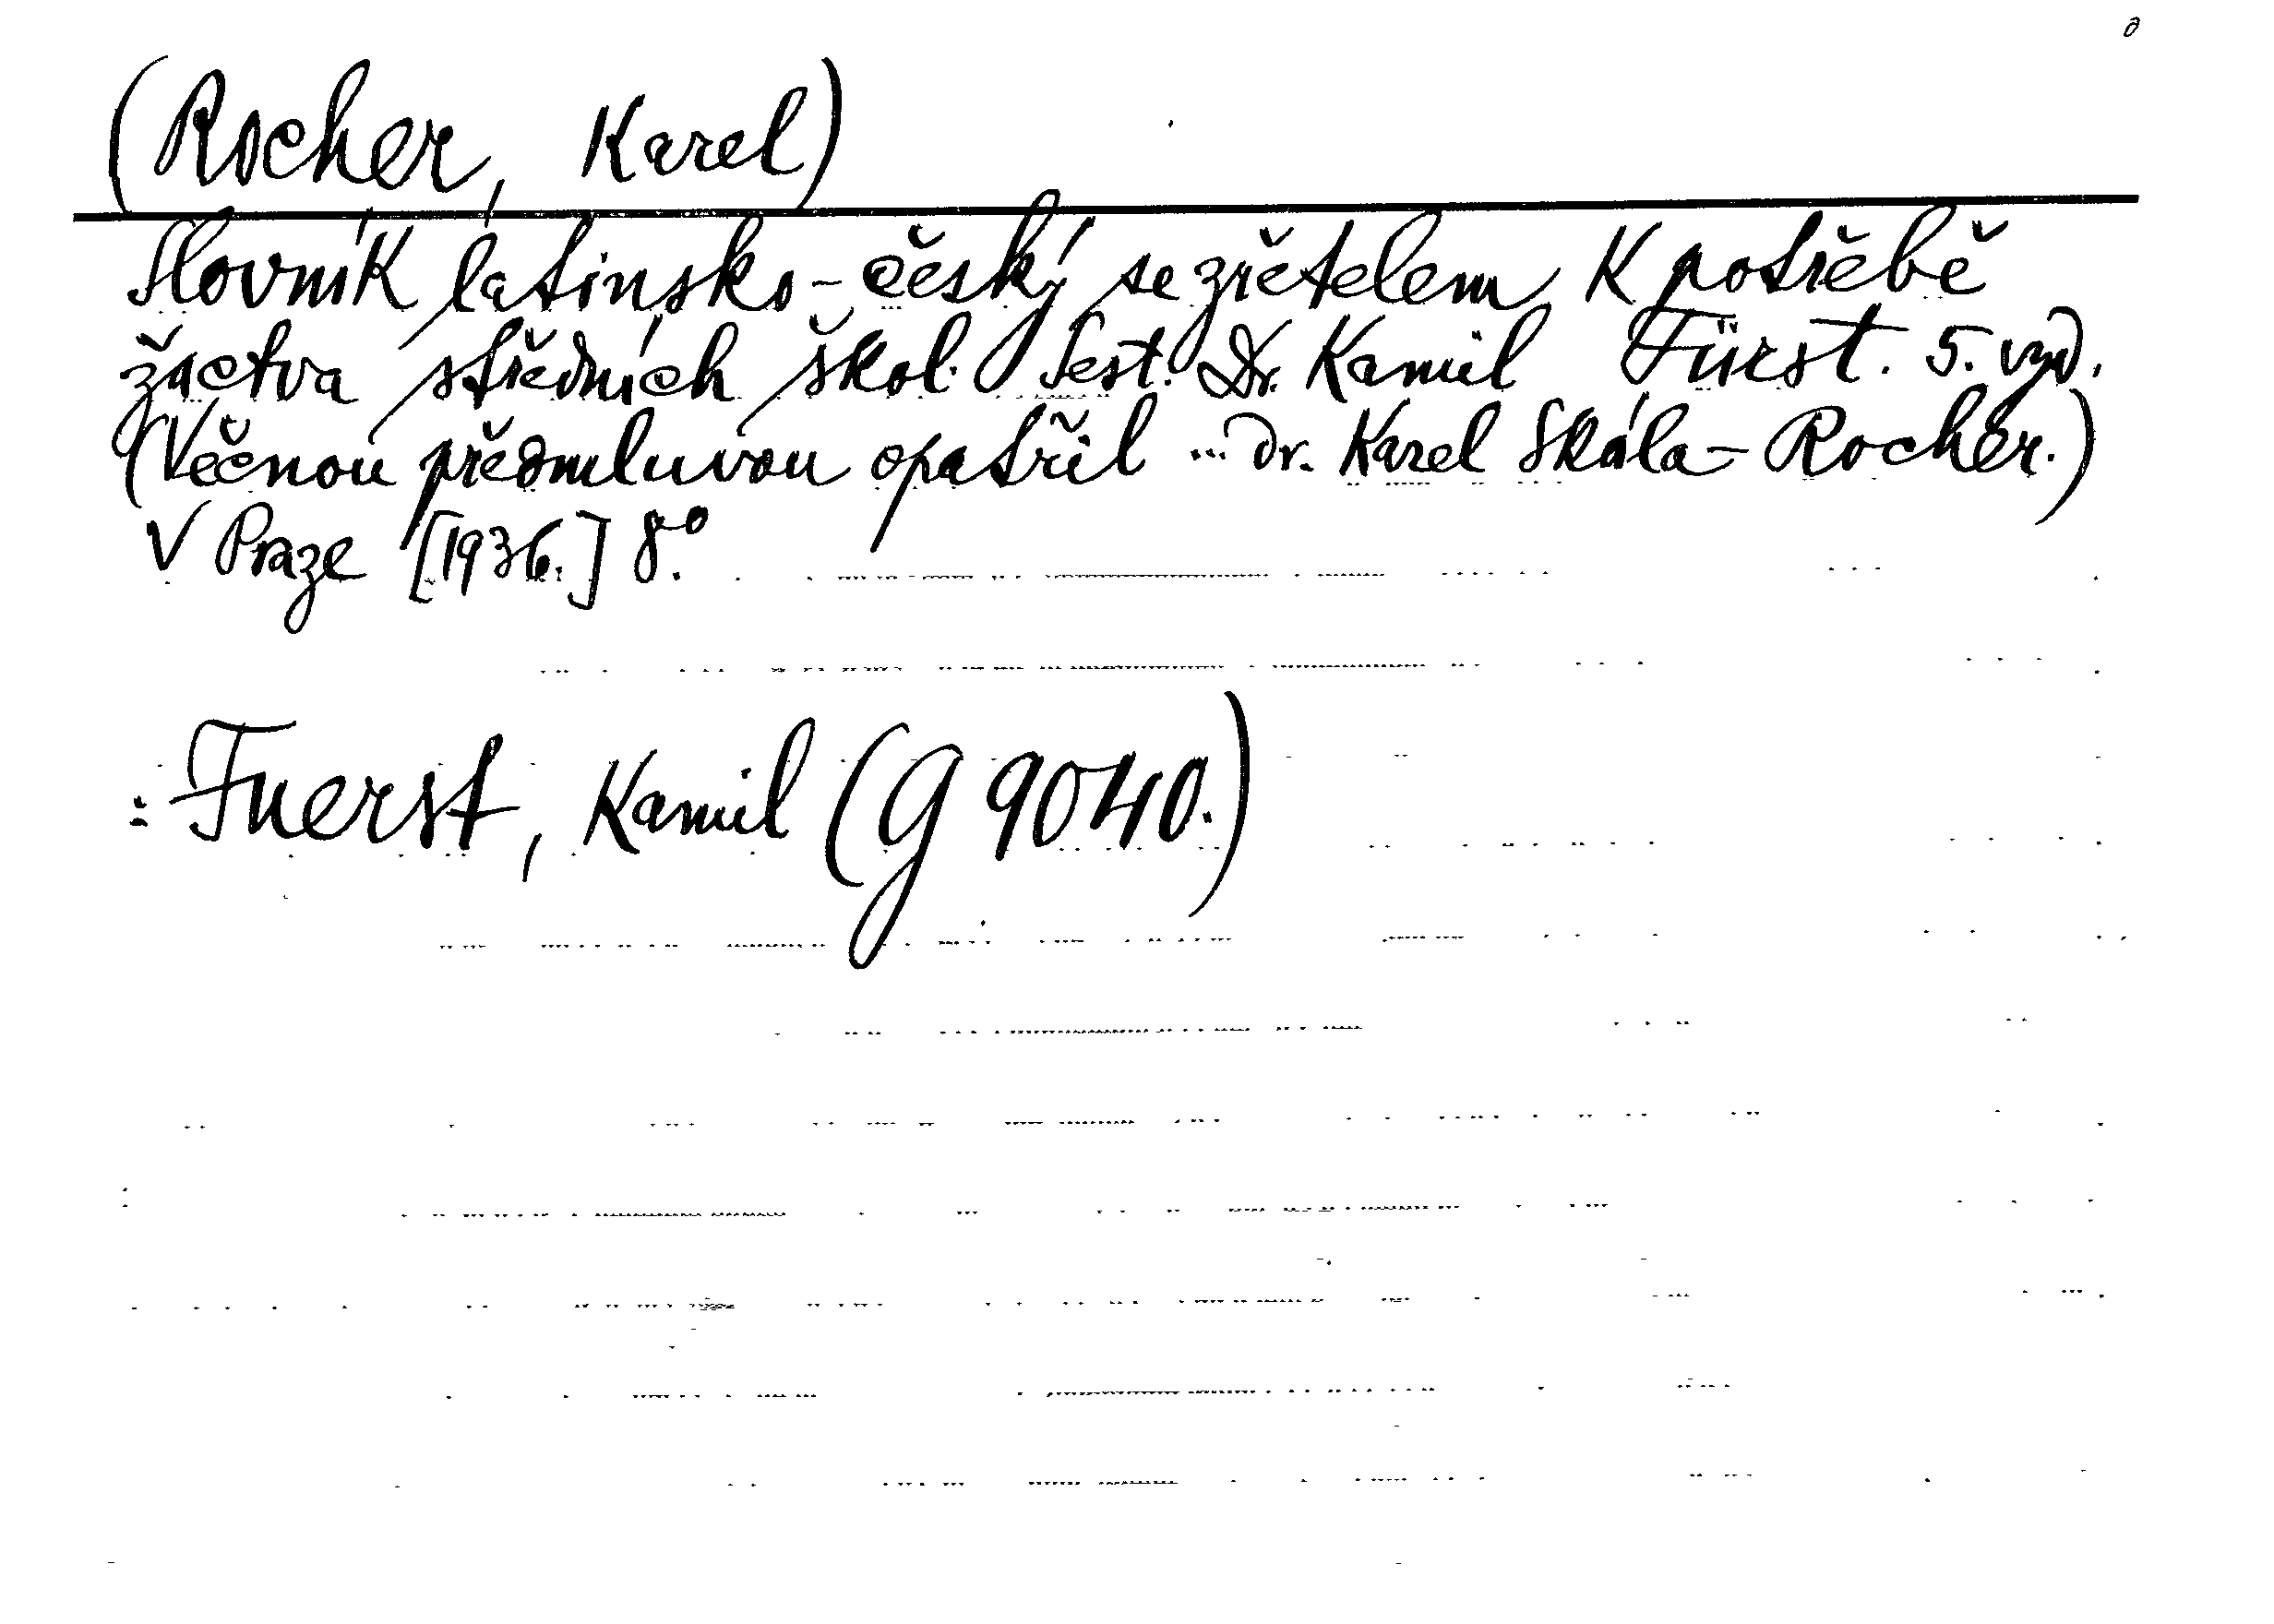 (Rocher, Karel)
Slovník latinsko-český se zřetelem K potřebě
žactva středních škol. Sest. Dr. Kamil Fürst. 5. vyd.
(Věcnou předmluvou opatřil ... Dr. Karel Skála-Rocher.)
V Praze [1936.] 8°.
: Fuerst, Kamil (G 9040.)